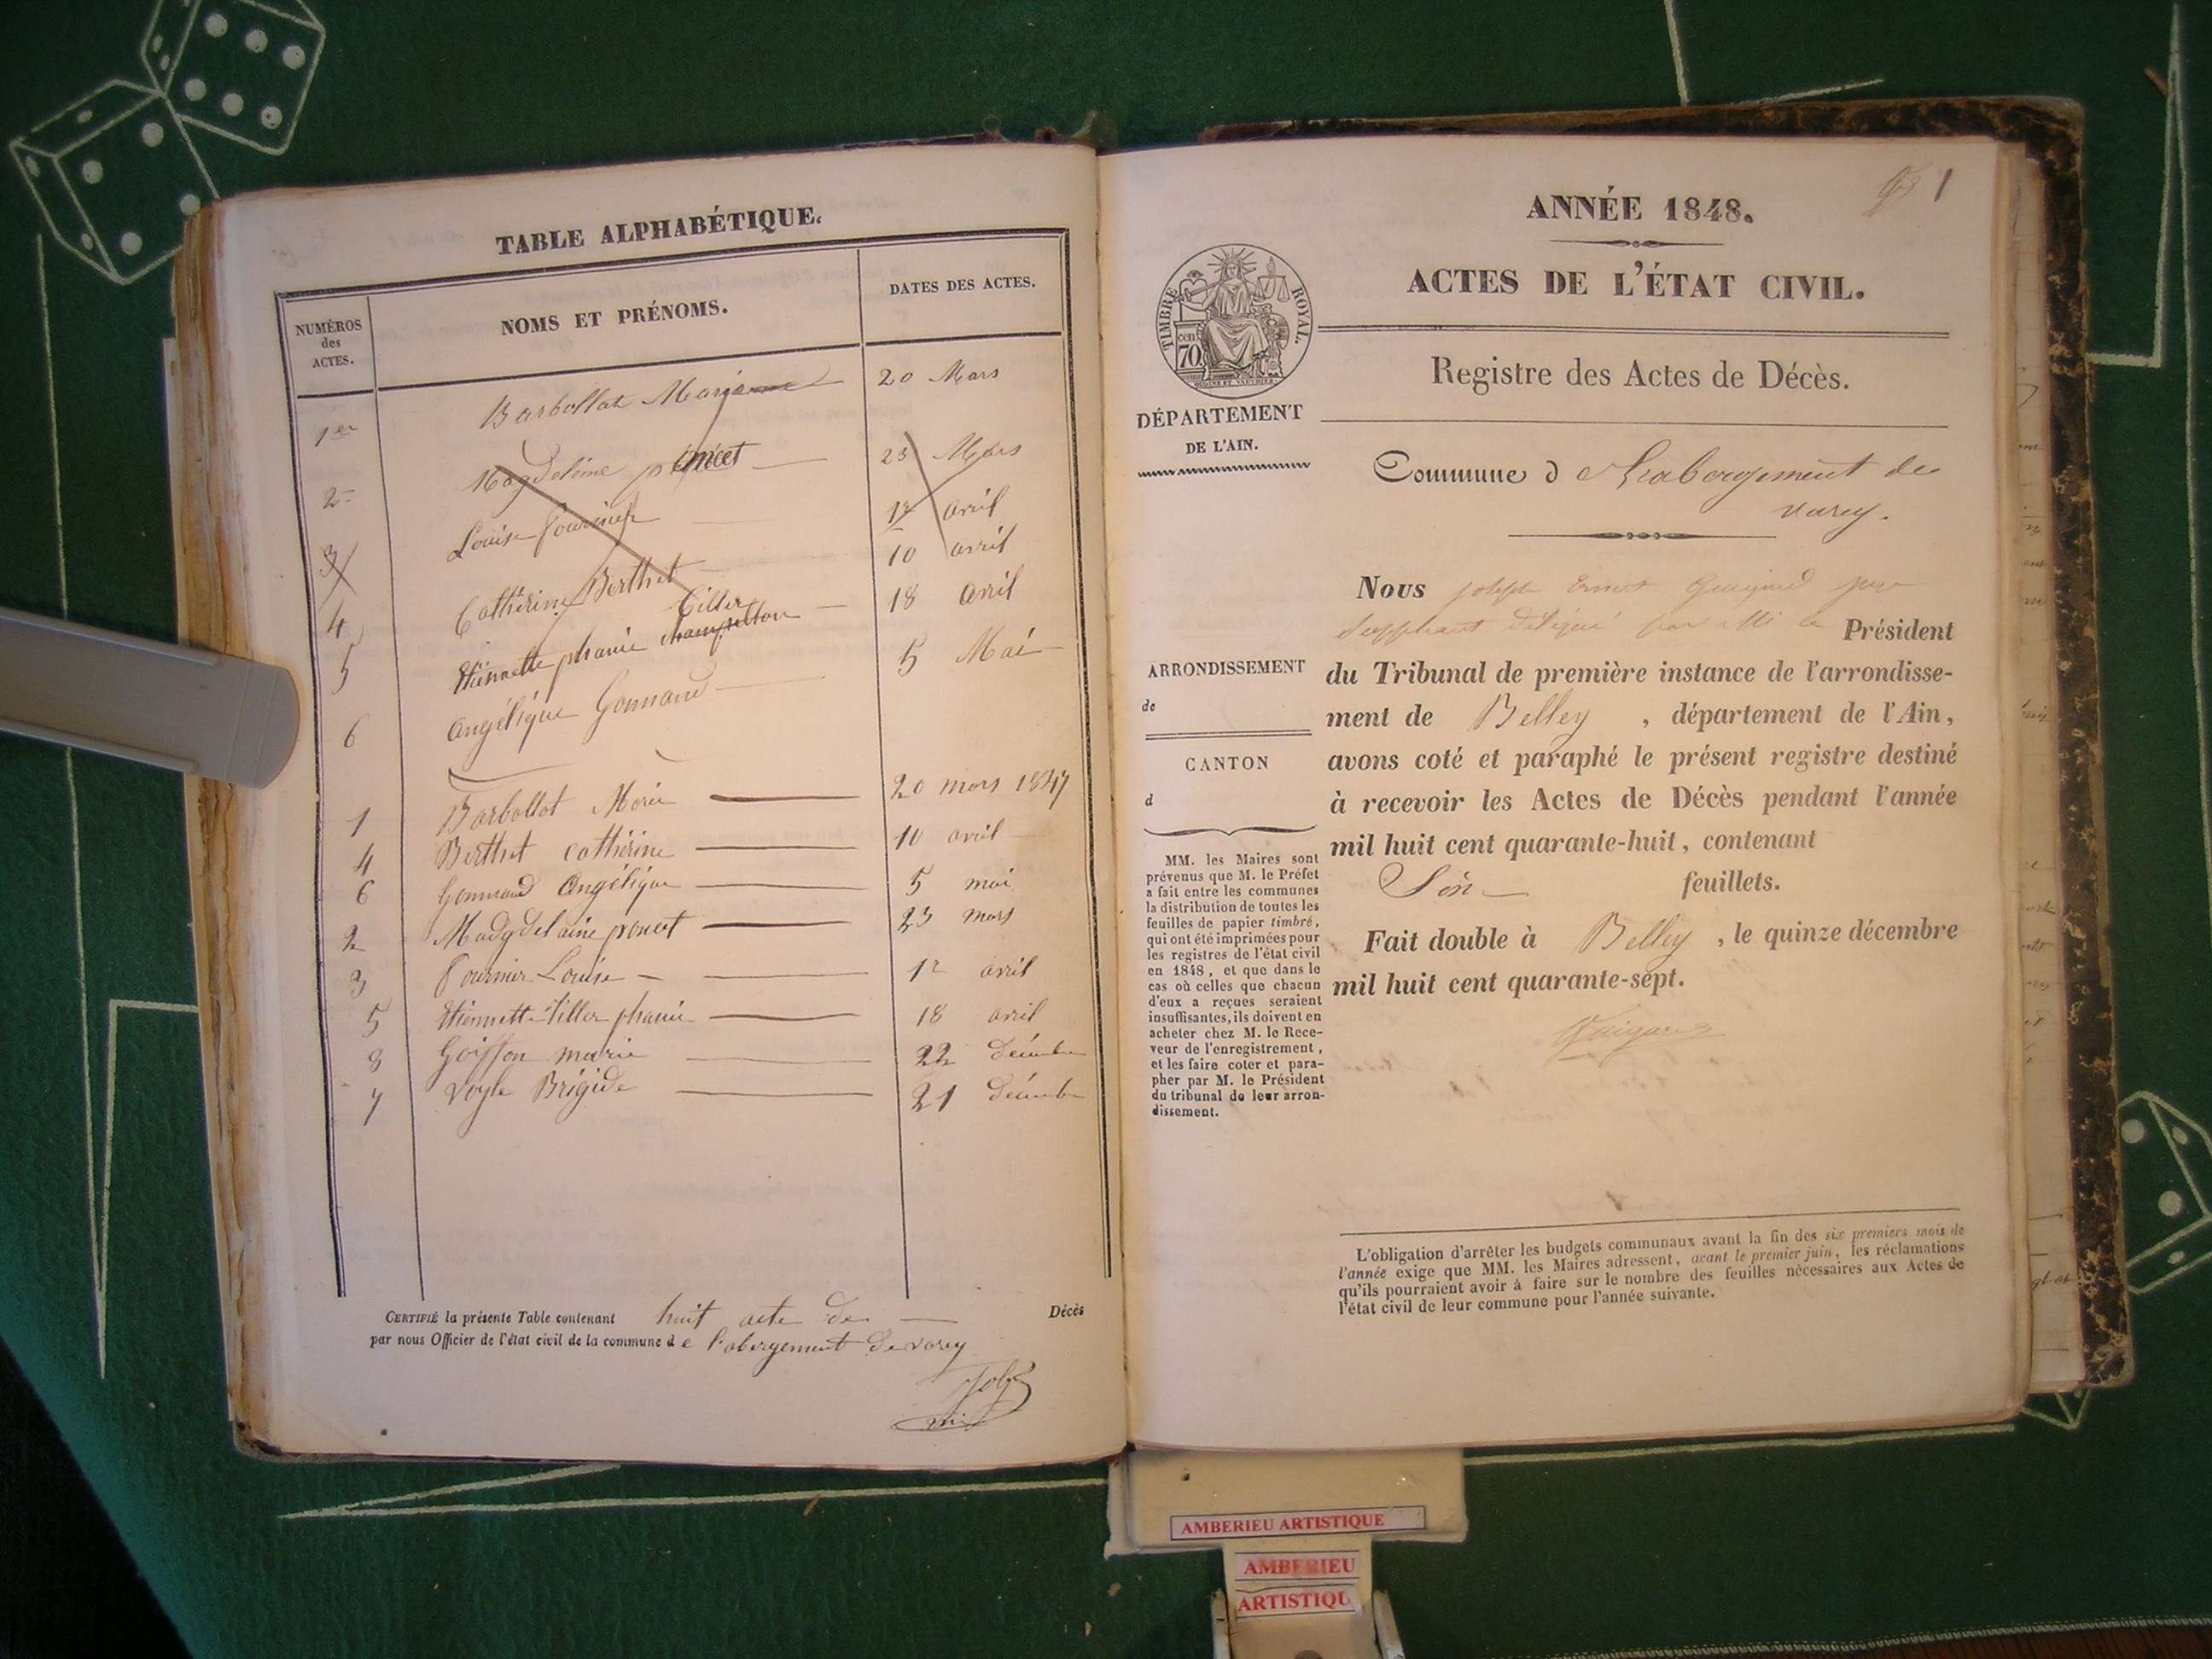 TABLE ALPHABÉTIQUE.
NUMÉROS
des
ACTES.
NOMS ET PRÉNOMS.
DATES DES ACTES.
1er Barbollat Marianne 20 Mars
2 Magdeleine poncet 23 Mars
3 Louise fournier 12 avril
4 Catherine Berthet 10 avril
Tiller
5 Etiennette phanie 18 avril
6 angélique Gonnand 5 Mai
1 Barbollot Marie 20 mars 1847
4 Berthet catherine 10 avril
6 Gonnand Angélique 5 mai
2 Madgdelaine poncet 23 mars
3 fournier Louise 12 avril
5 Etiennette tiller phanie 18 avril
8 Goiffon marie 22 décembre
7 Brigide 21 décembre
CERTIFIÉ la présente Table contenant huit acte de Décès
par nous Officier de l'état civil de la commune de l'abergement de varey
1
ANNÉE 1848.
ACTES DE L'ÉTAT CIVIL.
TIMBRE ROYAL.
70 cen
Registre des Actes de Décès.
DÉPARTEMENT
DE L'AIN.
Commune d de
varey.
Nous joseph Ernest juge
suppléant délégué par Mr le Président
ARRONDISSEMENT
de
du Tribunal de première instance de l'arrondisse-
ment de Belley , département de l'Ain,
avons coté et paraphé le présent registre destiné
à recevoir les Actes de Décès pendant l'année
mil huit cent quarante-huit, contenant
feuillets.
Fait double à Belley , le quinze décembre
mil huit cent quarante-sept.
CANTON
d
MM. les Maires sont
prévenus que M. le Préfet
a fait entre les communes
la distribution de toutes les
feuilles de papier timbré,
qui ont été imprimées pour
les registres de l'état civil
en 1848, et que dans le
cas où celles que chacun
d'eux a reçues seraient
insuffisantes, ils doivent en
acheter chez M. le Rece-
veur de l'enregistrement,
et les faire coter et para-
pher par M. le Président
du tribunal de leur arron-
dissement.
L'obligation d'arrêter les budgets communaux avant la fin des six premiers mois de
l'année exige que MM. les Maires adressent, avant le premier juin, les réclamations
qu'ils pourraient avoir à faire sur le nombre des feuilles nécessaires aux Actes de
l'état civil de leur commune pour l'année suivante.
AMBERIEU ARTISTIQUE
AMBERIEU
ARTISTIQU